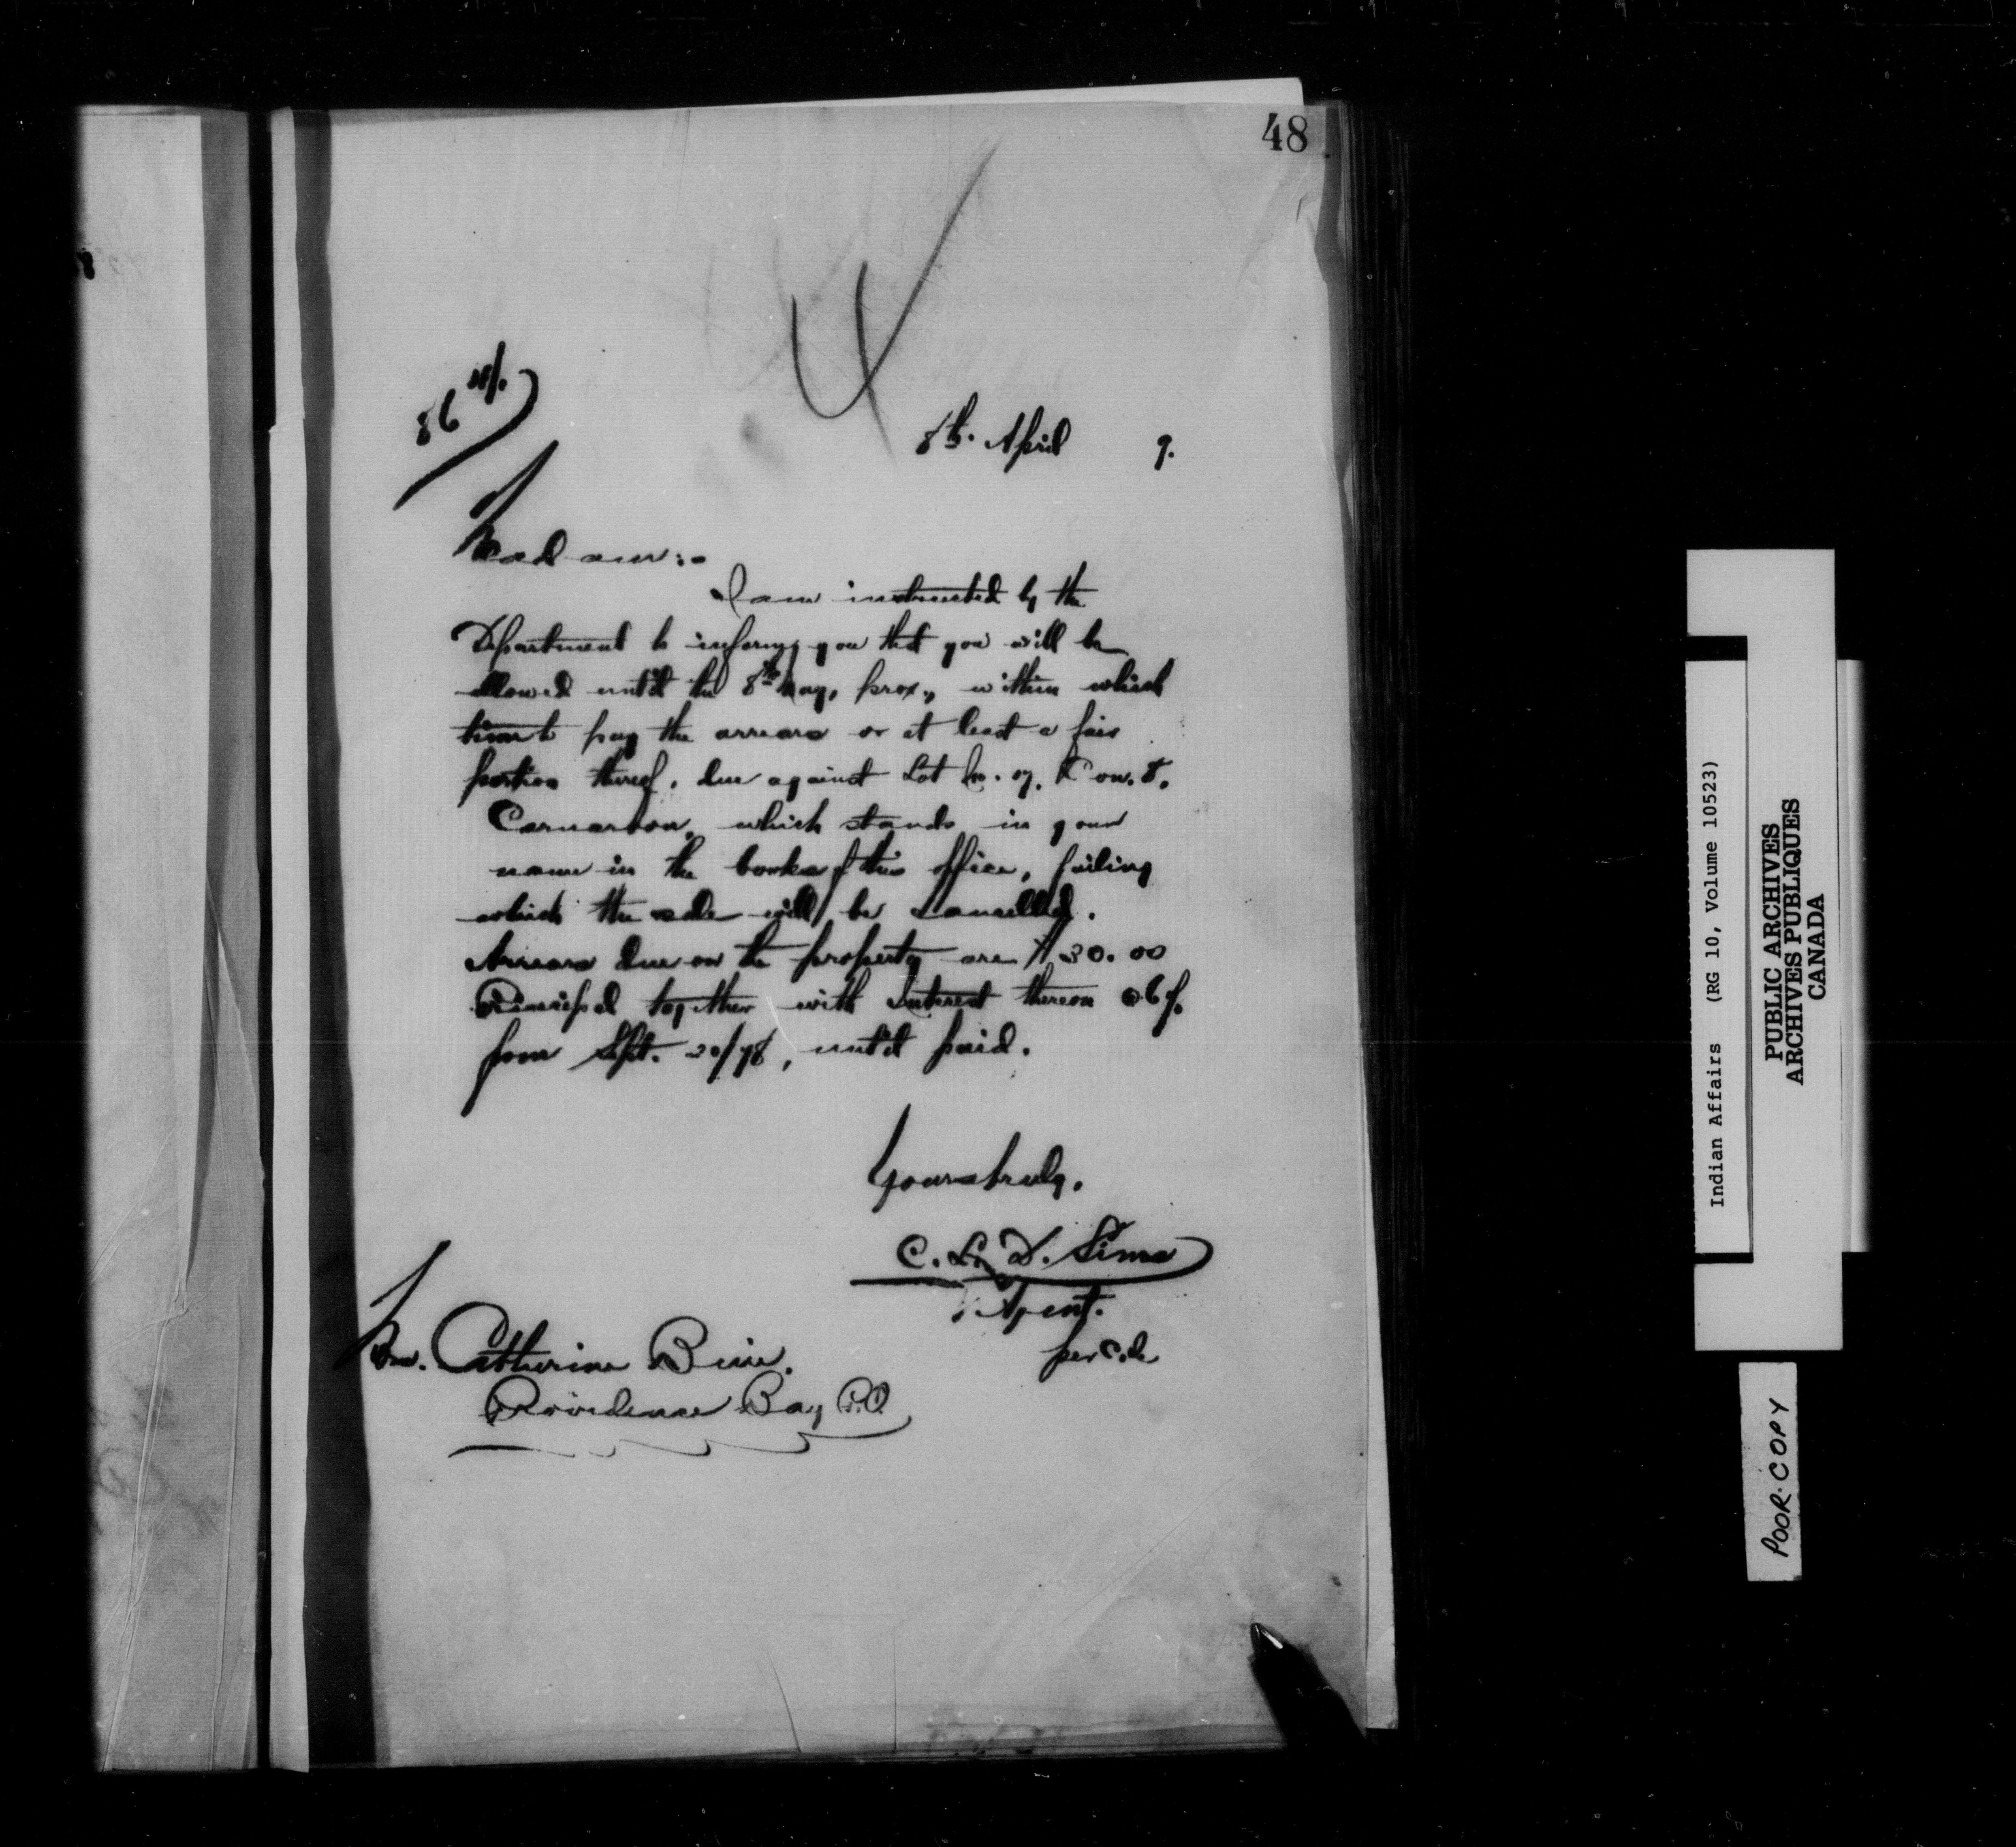 48
8th. April 9.
Madam:-
I am instructed by the
Department to inform you that you will be
allowed until the 8th May, prox., within which
time to pay the arrears or at least a fair
portion thereof, due against Lot No. Con. 8,
Carnarvon, which stands in your
name in the books of this office, failing
which the sale will be cancelled.
Arrears due on the property are $30.00
Principal together with Interest thereon @6%
from Sept. 20/98, until paid.
Yours truly,
C. L. D. Sims
Agent.
per
Mrs. Catherine
Providence Bay P.O.
Indian Affairs (RG 10, Volume 10523)
PUBLIC ARCHIVES
ARCHIVES PUBLIQUES
CANADA
POOR COPY